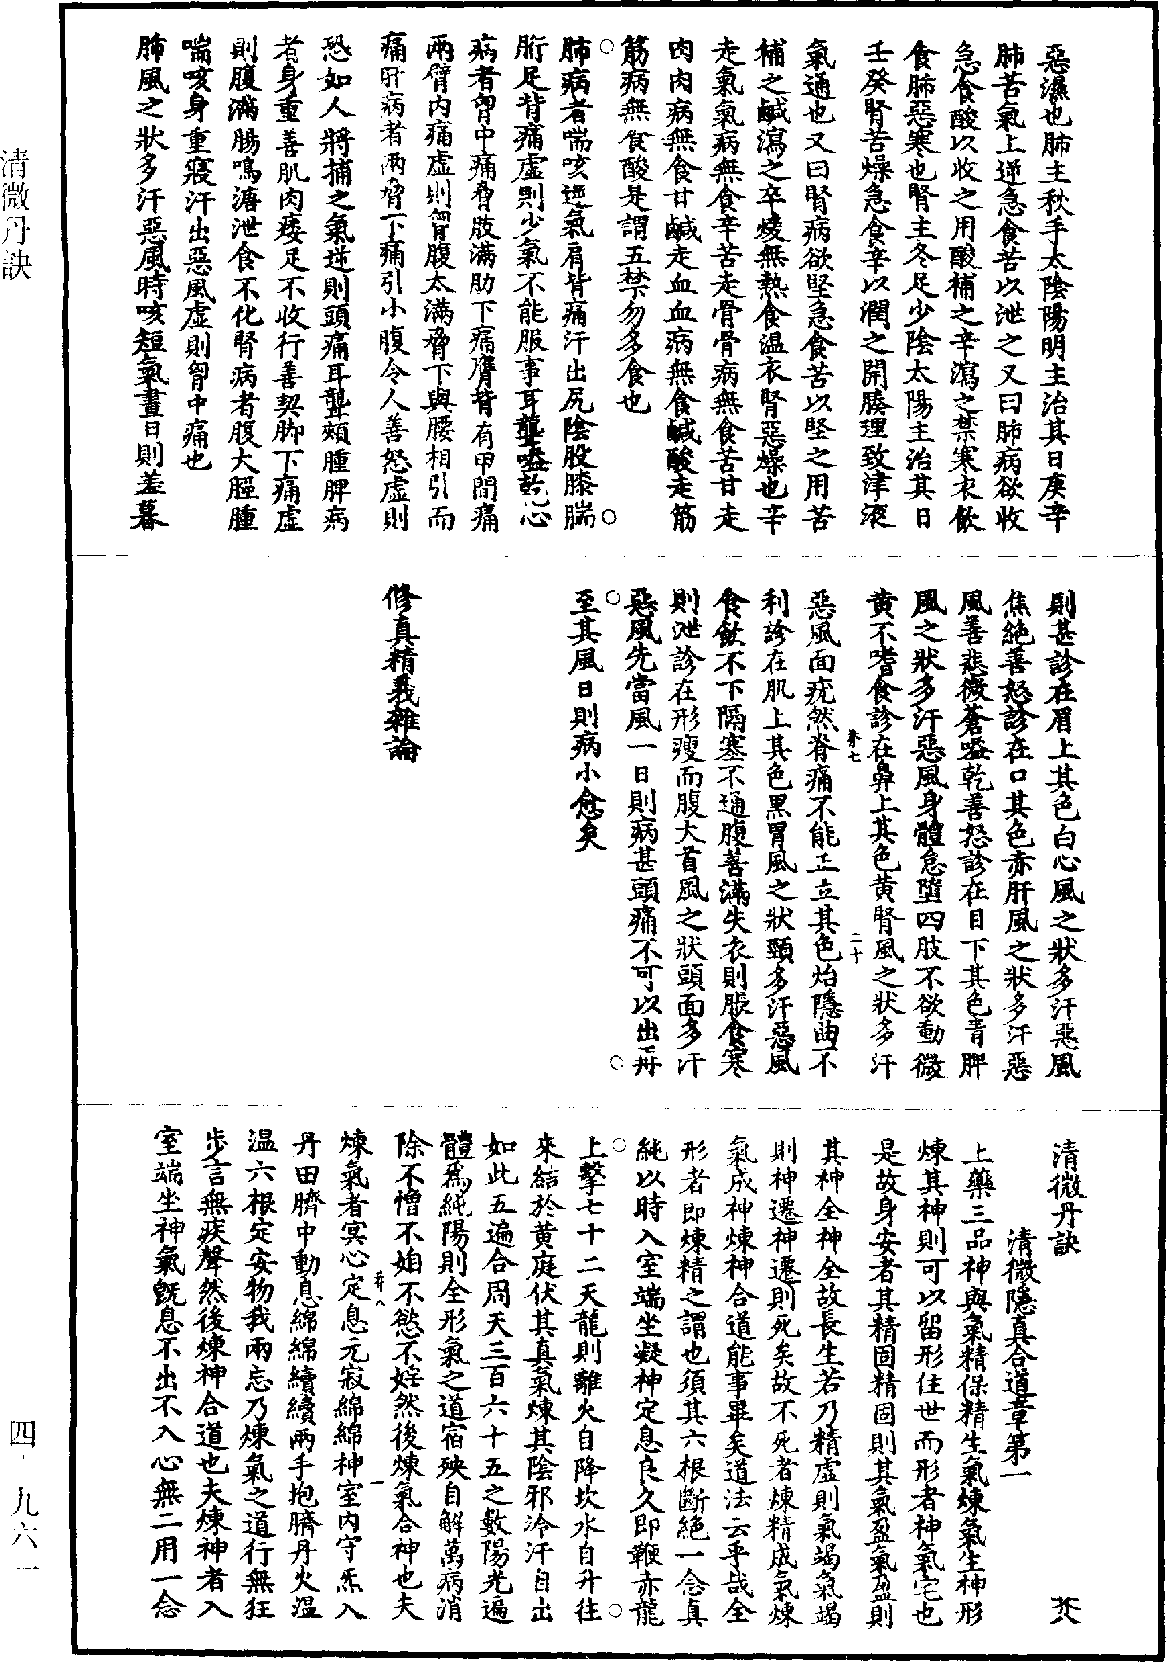 惡濕也肺主秋手太陰陽明主治其日庚辛
肺苦氣上逆急食苦以泄之又曰肺病欲收
急食酸以收之用酸補之辛瀉之禁寒衣飲
食肺惡寒也腎主冬足少陰太陽主治其日
壬癸腎苦燥急食辛以潤之開腠理致津液
氣通也又曰腎病欲堅急食苦以堅之用苦
補之鹹瀉之卒焠無熱食温衣腎惡燥也辛
走氣氣病無食辛苦走骨骨病無食苦甘走
肉肉病無食甘鹹走血血病無食鹹酸走筋
筋病無食酸是謂五禁勿多食也
肺病者喘咳逆氣肩背痛汗出尻陰股膝腨
䯒足背痛虛則少氣不能服事耳聾嗌乾心
病者胷中痛脅肢滿肋下痛膺背有甲間痛
兩臂内痛虛則胷腹太滿脅下與腰相引而
痛肝病者兩脅下痛引小腹令人善怒虛則
恐如人將捕之氣逆則頭痛耳聾頰腫脾病
者身重善肌肉痿足不收行善契脚下痛虛
則腹滿腸鳴溏泄食不化腎病者腹大脛腫
喘咳身重寢汗出惡風虛則胷中痛也
肺風之狀多汗惡風時咳短氣晝日則差暮
則甚診在眉上其色白心風之狀多汗惡風
焦絶善怒診在口其色赤肝風之狀多汗惡
風善悲微蒼嗌乾善怒診在目下其色青脾
風之狀多汗惡風身體怠墮四肢不欲動微
黃不嗜食診在鼻上其色黄腎風之狀多汗
卷七 二十
惡風面疣然脊痛不能正立其色炲隱曲不
利診在肌上其色黑胃風之狀頸多汗惡風
食飲不下隔塞不通腹善滿失衣則脹食寒
則泄診在形瘦而腹大首風之狀頭面多汗
惡風先當風一日則病甚頭痛不可以出
至其風日則病小愈矣
修真精義雜論
清微丹訣
清微隱真合道章第一
上藥三品神與氣精保精生氣煉氣生神形
煉其神則可以留形住世而形者神氣宅也
是故身安者其精固精固則其氣盈氣盈則
其神全神全故長生若乃精虛則氣竭氣竭
則神遷神遷則死矣故不死者煉精成氣煉
氣成神煉神合道能事畢矣道法云乎哉全
形者即煉精之謂也須其六根斷絶一念真
純以時入室端坐凝神定息良久即鞭赤龍
上擊七十二天龍則離火自降坎水自升往
來結於黄庭伏其真氣煉其陰邪冷汗自出
如此五遍合周天三百六十五之數陽光遍
體爲純陽則全形氣之道宿殃自解萬病消
除不憎不妲不慾不婬然後煉氣合神也夫
煉氣者冥心定息元寂綿綿神室内守炁入
丹田臍中動息綿綿續續兩手抱臍丹火温
温六根定安物我兩忘乃煉氣之道行無狂
步言無疾聲然後煉神合道也夫煉神者入
室端坐神氣既息不出不入心無二用一念
清微丹訣
四·九六一